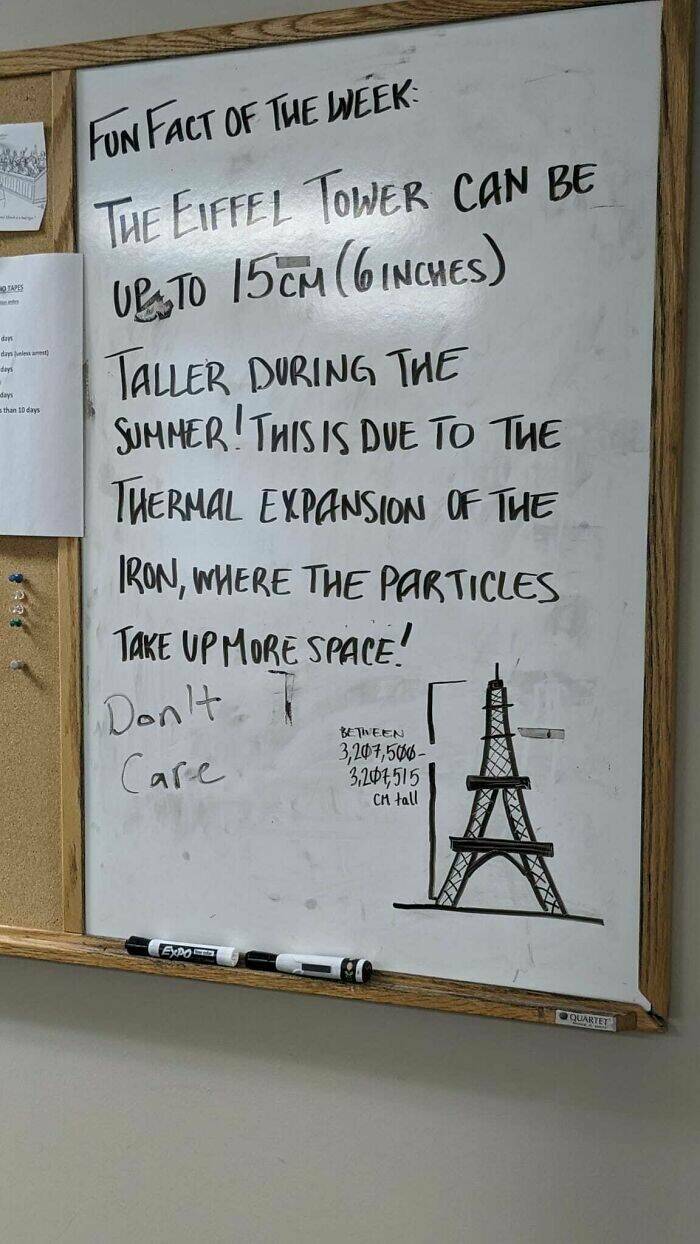 FUN FACT OF THE WEEK:
THE EIFFEL TOWER CAN BE
UP TO 15CM (6 INCHES)
TALLER DURING THE
SUMMER! THIS IS DUE TO THE
THERMAL EXPANSION OF THE
IRON, WHERE THE PARTICLES
TAKE UP MORE SPACE!
Don't
Care
BETWEEN
3,207,500-
3,207,515
CM tall
TAPES
days
days (unless arrest)
days
days
than 10 days
EXPO
QUARTET